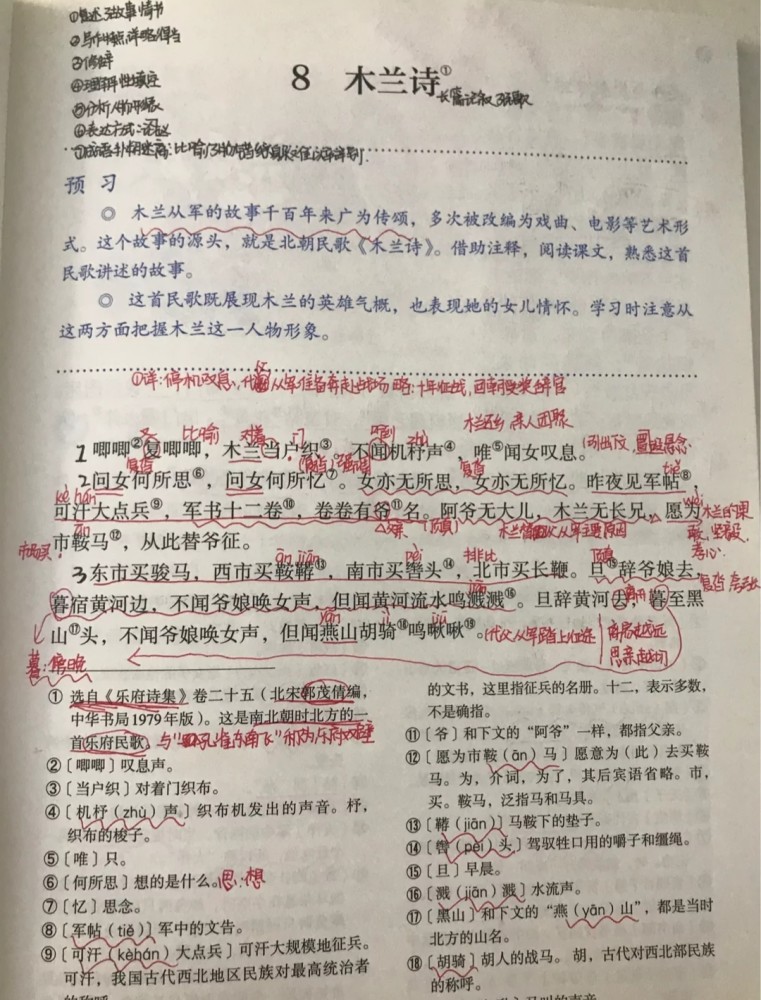 ①复述故事情节
②写作特点,详略得当
③修辞
④理解性填空
⑤分析人物形象
⑥表达方式:议论
8 木兰诗①
长篇记叙
预 习
◎ 木兰从军的故事千百年来广为传颂，多次被改编为戏曲、电影等艺术形
式。这个故事的源头，就是北朝民歌《木兰诗》。借助注释，阅读课文，熟悉这首
民歌讲述的故事。
◎ 这首民歌既展现木兰的英雄气概，也表现她的女儿情怀。学习时注意从
这两方面把握木兰这一人物形象。
①详:停机叹息,代父从军,准备奔赴战场 略:十年征战,
木兰还乡 亲人团聚
比喻 对着 门 听到 zhù
1 唧唧②复唧唧，木兰当户织③。不闻机杼声④，唯⑤闻女叹息。
引出下文,设置悬念
复沓 顶真 复沓 tiě
2 问女何所思⑥，问女何所忆⑦。女亦无所思，女亦无所忆。昨夜见军帖⑧，
kè hán
可汗大点兵⑨，军书十二卷⑩，卷卷有爷⑪名。阿爷无大儿，木兰无长兄，愿为
ān 父亲 (顶真) wèi 木兰的果
敢,坚毅,
孝心.
市鞍马⑫，从此替爷征。
市:购买
ān jiān pèi 排比 顶真
3 东市买骏马，西市买鞍鞯⑬，南市买辔头⑭，北市买长鞭。旦⑮辞爷娘去，
复沓
暮宿黄河边，不闻爷娘唤女声，但闻黄河流水鸣溅溅⑯。旦辞黄河去，暮至黑
yān jì jiū
山⑰头，不闻爷娘唤女声，但闻燕山胡骑⑱鸣啾啾⑲。
代父从军踏上征途
离家越远
思亲越切
暮:傍晚
① 选自《乐府诗集》卷二十五（北宋郭茂倩编，
中华书局1979年版）。这是南北朝时北方的一
首乐府民歌。
与"孔雀东南飞"称为乐府双璧
②〔唧唧〕叹息声。
③〔当户织〕对着门织布。
④〔机杼（zhù）声〕织布机发出的声音。杼，
织布的梭子。
⑤〔唯〕只。
⑥〔何所思〕想的是什么。思:想
⑦〔忆〕思念。
⑧〔军帖（tiě）〕军中的文告。
⑨〔可汗（kèhán）大点兵〕可汗大规模地征兵。
可汗，我国古代西北地区民族对最高统治者
的称呼。
的文书，这里指征兵的名册。十二，表示多数，
不是确指。
⑪〔爷〕和下文的“阿爷”一样，都指父亲。
⑫〔愿为市鞍（ān）马〕愿意为（此）去买鞍
马。为，介词，为了，其后宾语省略。市，
买。鞍马，泛指马和马具。
⑬〔鞯（jiān）〕马鞍下的垫子。
⑭〔辔（pèi）头〕驾驭牲口用的嚼子和缰绳。
⑮〔旦〕早晨。
⑯〔溅（jiān）溅〕水流声。
⑰〔黑山〕和下文的“燕（yān）山”，都是当时
北方的山名。
⑱〔胡骑〕胡人的战马。胡，古代对西北部民族
的称呼。